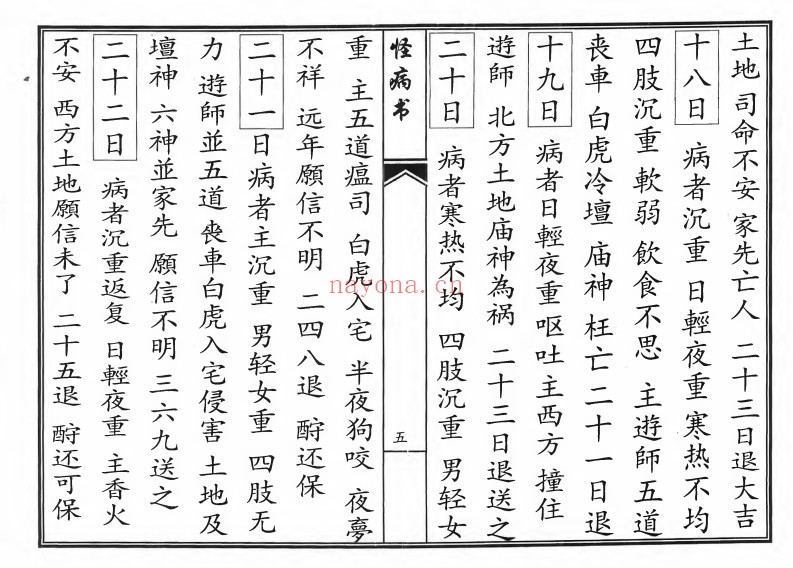 土地 司命不安 家先亡人 二十三日退大吉
十八日 病者沉重 日輕夜重 寒热不均
四肢沉重 軟弱 飲食不思 主遊師五道
丧車 白虎冷壇 庙神 枉亡二十一日退
十九日 病者日輕夜重呕吐主西方 撞住
遊師 北方土地庙神為祸 二十三日退送之
二十日 病者寒热不均 四肢沉重 男轻女
怪病书
五
重 主五道瘟司 白虎入宅 半夜狗咬 夜夢
不祥 远年願信不明 二四八退 酧还保
二十一日病者主沉重 男轻女重 四肢无
力 遊師並五道 丧車白虎入宅侵害 土地及
壇神 六神並家先 願信不明 三六九送之
二十二日 病者沉重返复 日輕夜重 主香火
不安 西方土地願信未了 二十五退 酧还可保
nayona.cn